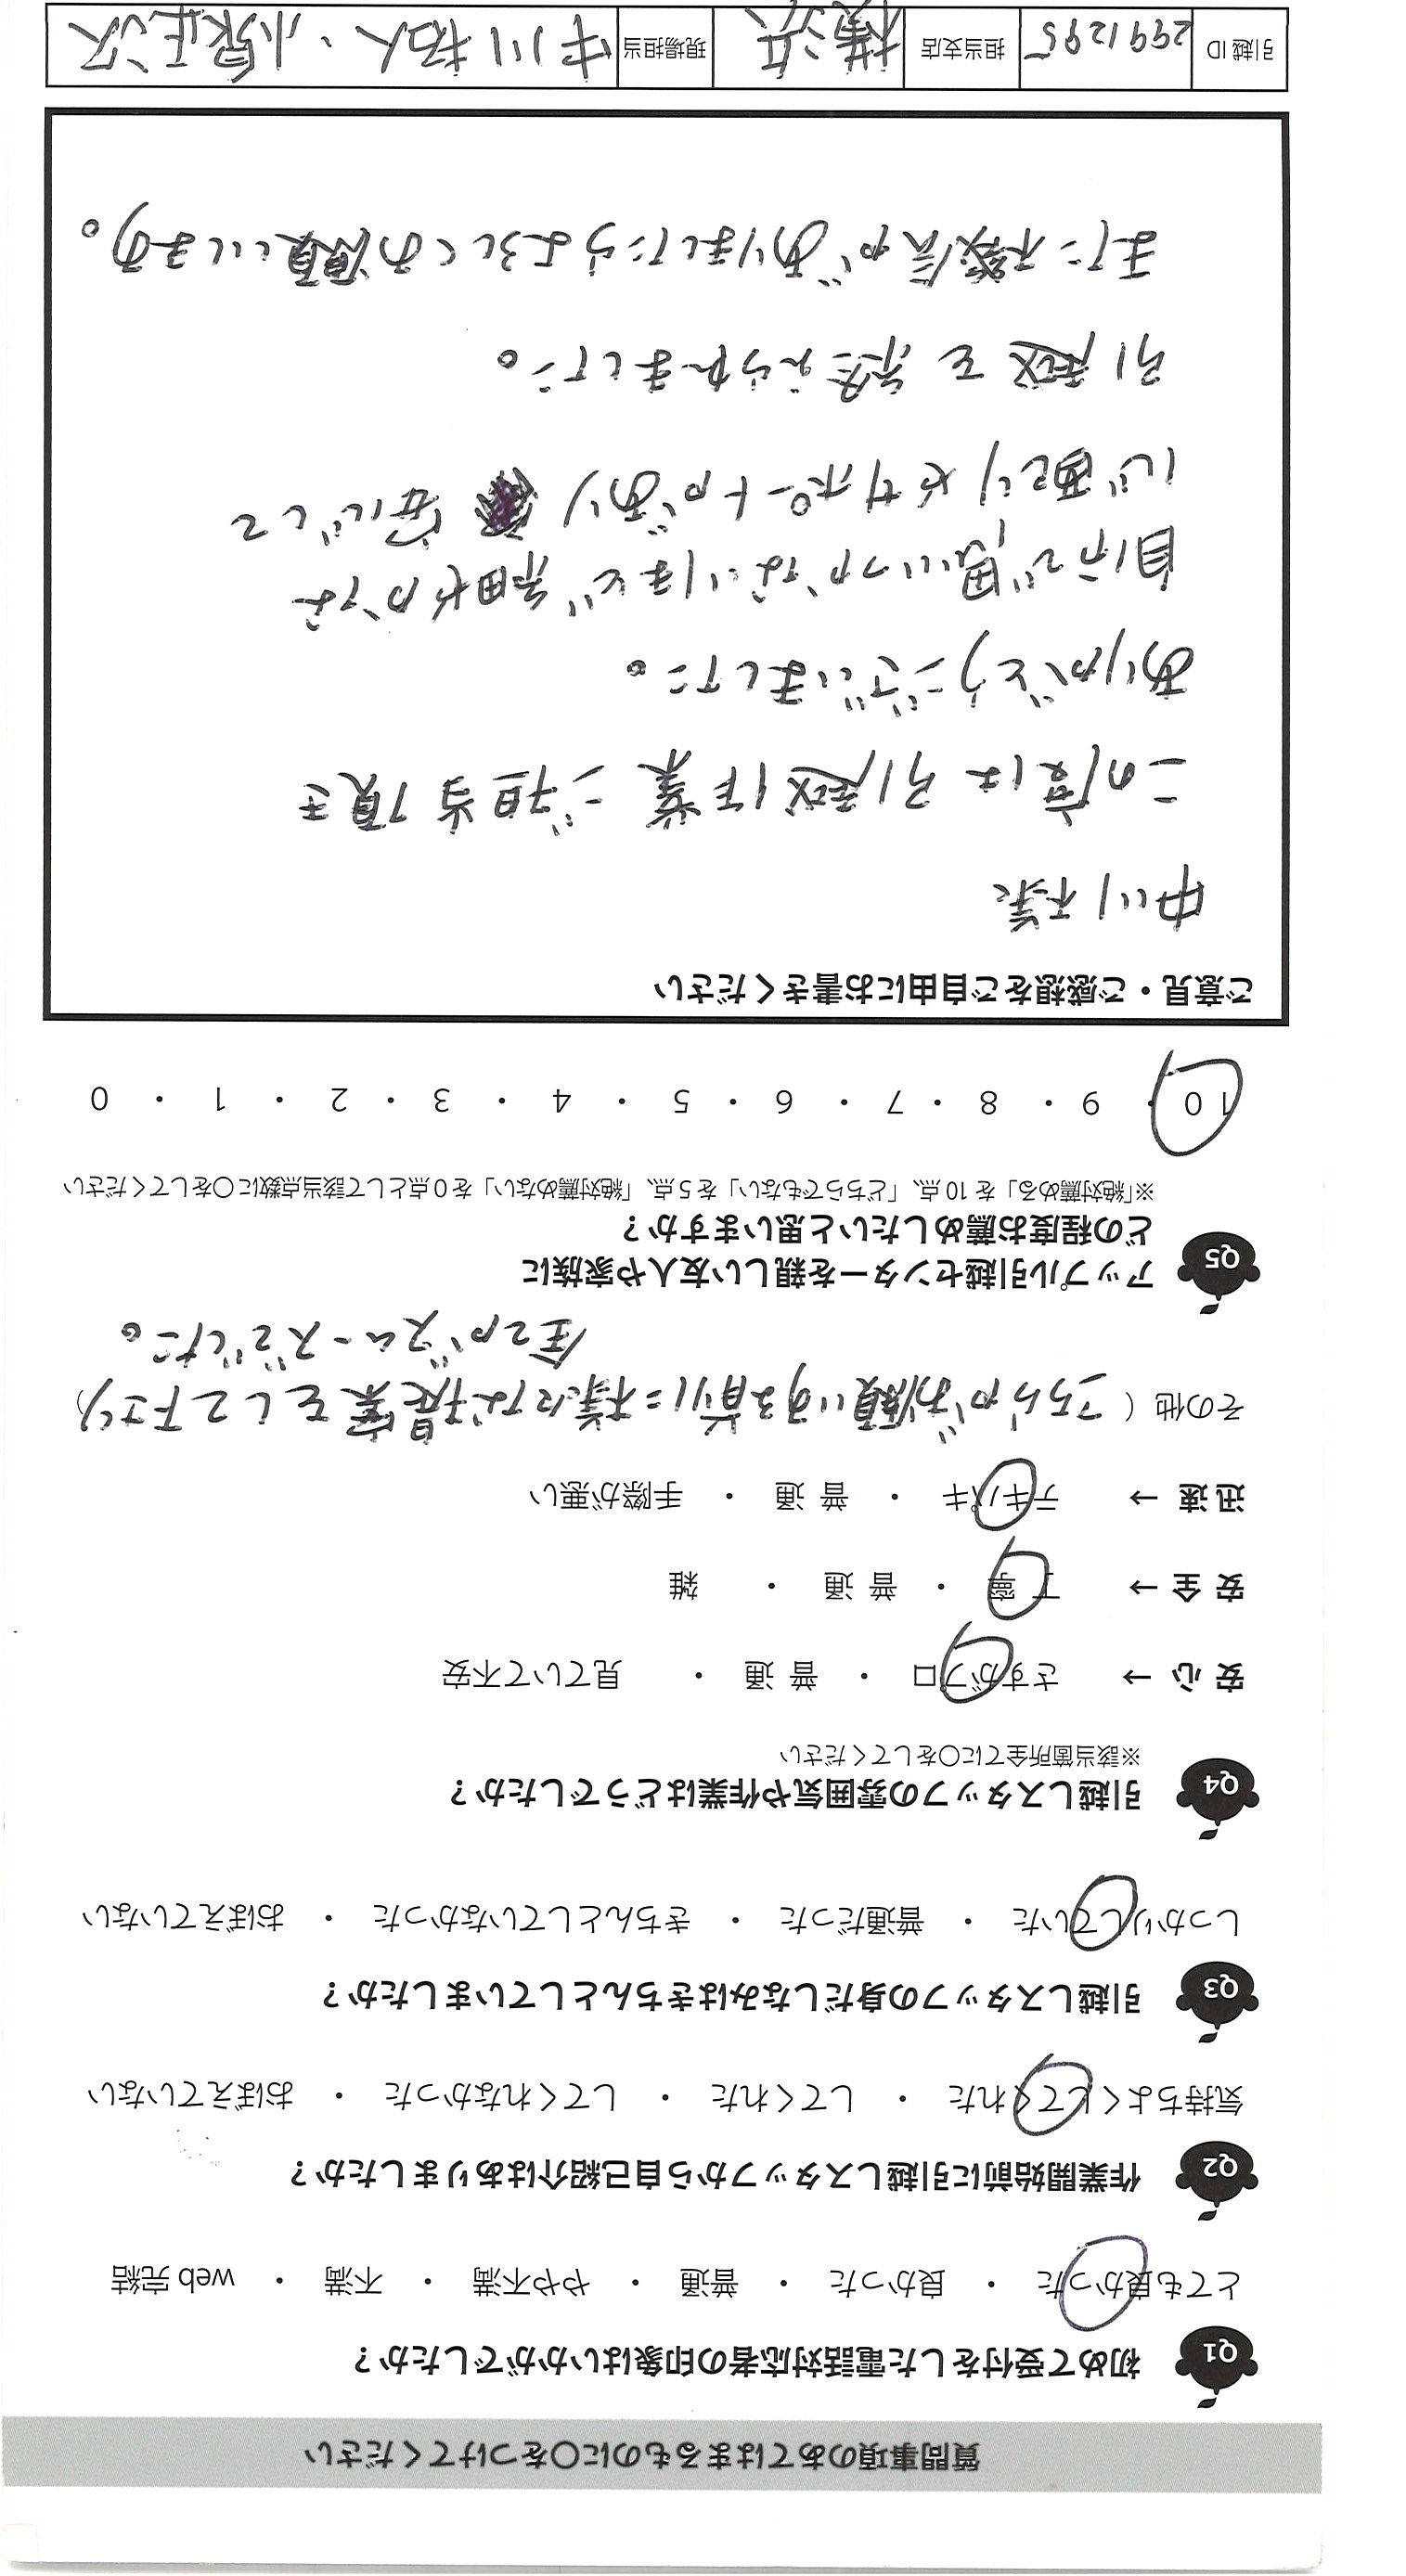 質問事項のあてはまるものに○をつけてください
Q1 初めて受付をした電話対応者の印象はいかがでしたか？
とても良かった ・ 良かった ・ 普通 ・ やや不満 ・ 不満 ・ web 完結
Q2 作業開始前に引越しスタッフから自己紹介はありましたか？
気持ちよくしてくれた ・ してくれた ・ してくれなかった ・ おぼえていない
Q3 引越しスタッフの身だしなみはきちんとしていましたか？
しっかりしていた ・ 普通だった ・ きちんとしていなかった ・ おぼえていない
Q4 引越しスタッフの雰囲気や作業はどうでしたか？
※該当箇所全てに○をしてください
安 心 → さすがプロ ・ 普 通 ・ 見ていて不安
安 全 → 丁 寧 ・ 普 通 ・ 雑
迅 速 → テキパキ ・ 普 通 ・ 手際が悪い
その他 ( こちらがお願いする前に様々な提案をして下さり)
全てがスムーズでした。
Q5 アップル引越センターを親しい友人や家族に
どの程度お薦めしたいと思いますか？
※「絶対薦める」を 10 点、「どちらでもない」を 5 点、「絶対薦めない」を 0 点として該当点数に○をしてください
10 ・ 9 ・ 8 ・ 7 ・ 6 ・ 5 ・ 4 ・ 3 ・ 2 ・ 1 ・ 0
ご意見・ご感想をご自由にお書きください
中川様
この度は引越作業ご担当頂き
ありがとうございました。
自分で思いつかないほど細やかな
心配りやサポートがあり 安心して
引越を終えられました。
また機会がありましたらよろしくお願いします。
引越 ID 2991295 担当支店 横浜 現場担当 中川拓人・小泉正沢